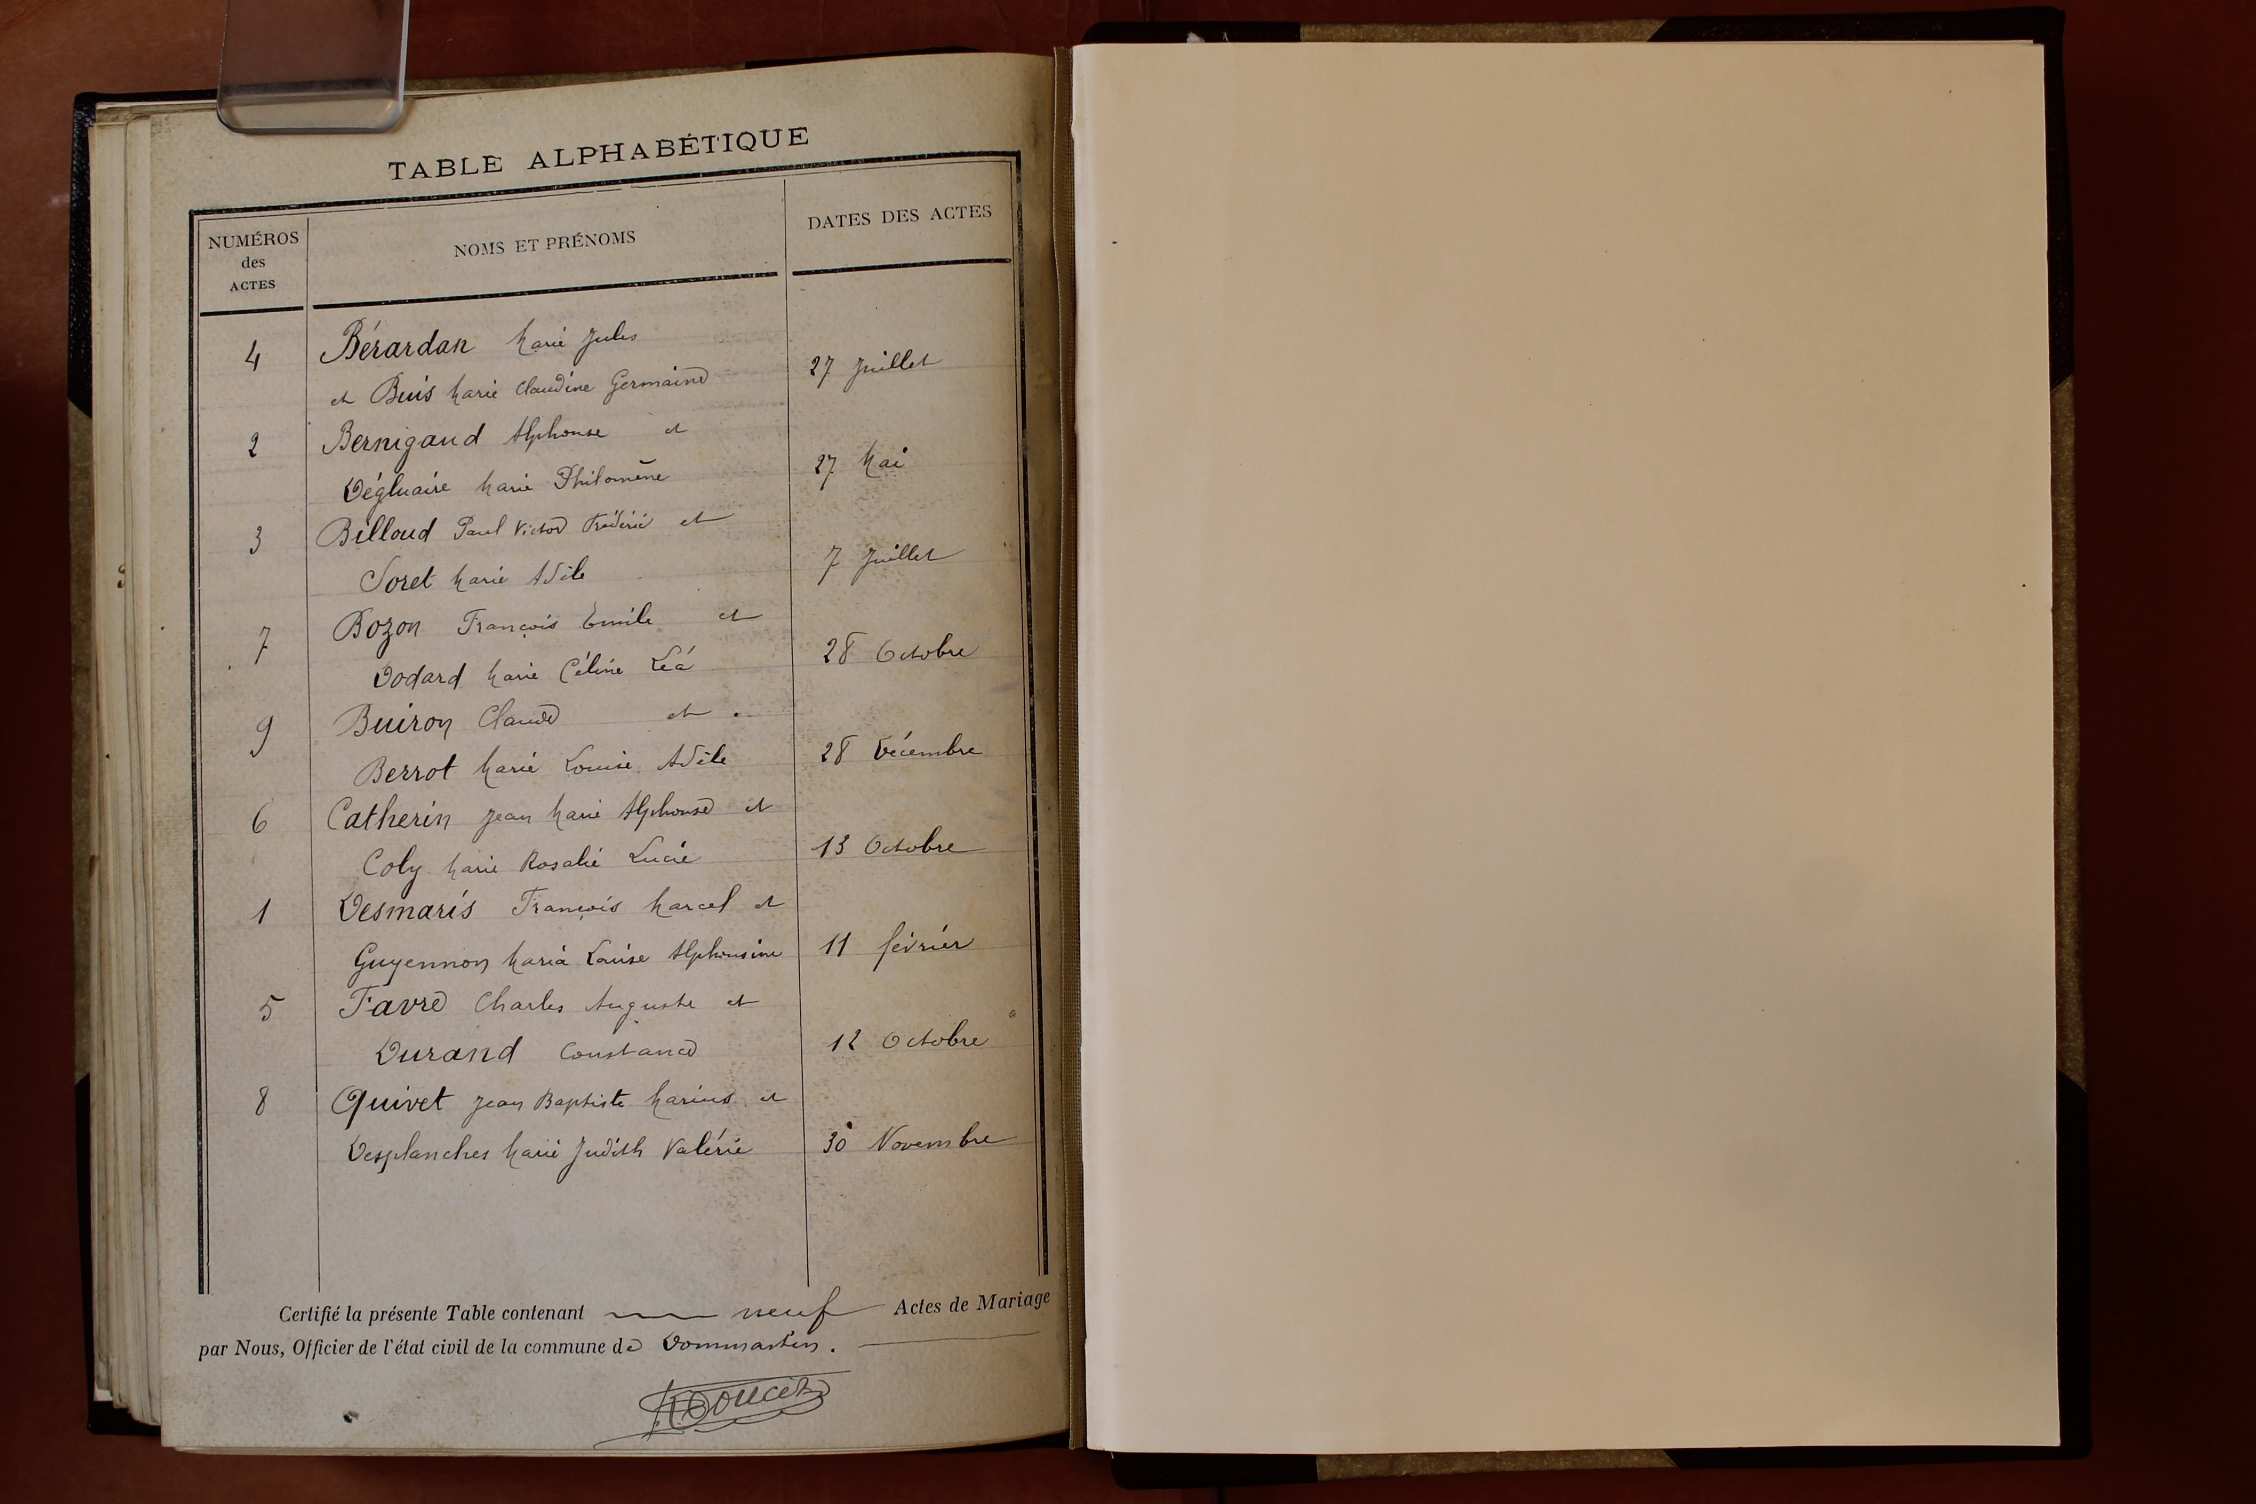 TABLE ALPHABÉTIQUE
NUMÉROS
des
ACTES
NOMS ET PRÉNOMS
DATES DES ACTES
4 Bérardan Marie Jules
et Buis Marie Claudine Germaine 27 Juillet
2 Bernigaud Alphonse et
Dégluaire Marie Philomène 27 Mai
3 Billoud Paul Victor Frédéric et
Soret Marie Adèle 7 Juillet
7 Bozon François Emile et
Dodard Marie Céline Léa 28 Octobre
9 Buiron Claude et
Berrot Marie Louise Adèle 28 Décembre
6 Catherin Jean Marie Alphonse et
Coly Marie Rosalie Lucie 13 Octobre
1 Desmaris François Marcel et
Guyennon Maria Louise Alphonsine 11 février
5 Favre Charles Auguste et
Durand Constance 12 Octobre
8 Quivet Jean Baptiste Marius et
Desplanches Marie Judith Valérie 30 Novembre
Certifié la présente Table contenant neuf Actes de Mariage
par Nous, Officier de l'état civil de la commune de Dommartin.